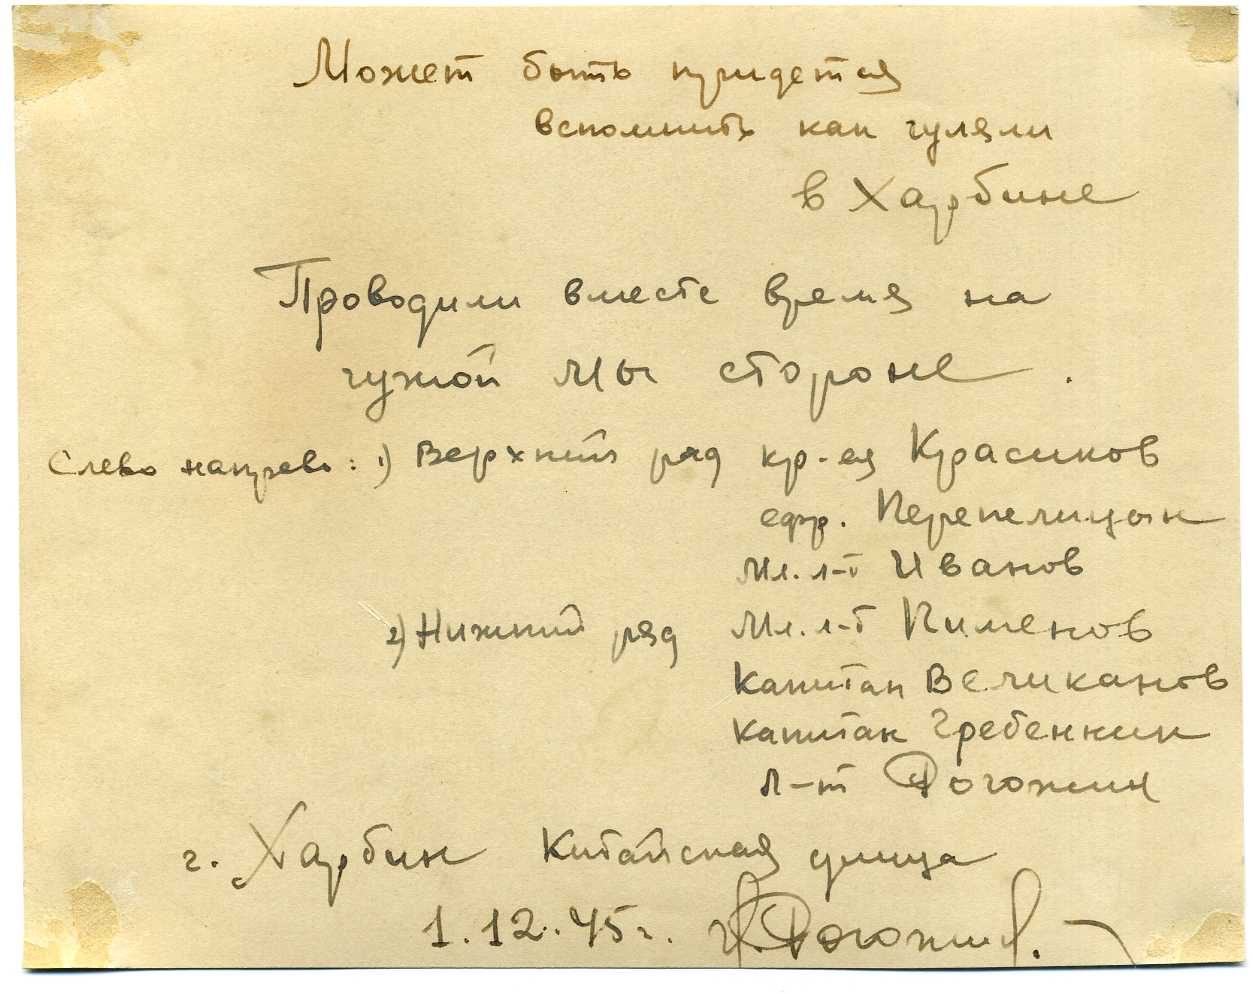 Может быть придется
вспомнить как гуляли
в Харбине
Проводили вместе время на
чужой мы стороне.
Слево направо: 1) Верхний ряд кр-ец Красиков
ефр. Перепелицын
Мл. л-т Иванов
2) Нижний ряд Мл. л-т Пименов
Капитан Великанов
Капитан Гребенкин
Л-т Рогожин
г. Харбин Китайская улица
1.12.45г. Рогожин.